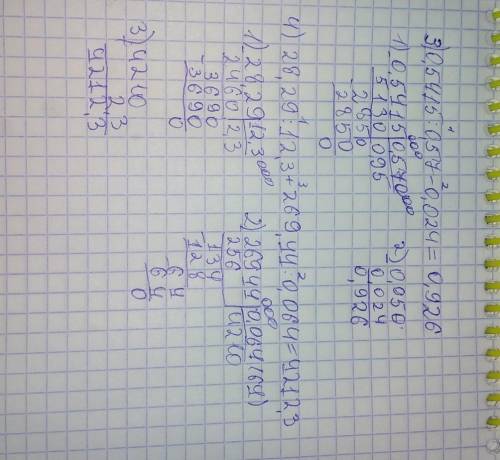 3) 0,5415:0,57-0,024=0,926
1) 0,5415 0,57000 2) 0,950
5130 0,95 0,024
2850 0,926
2850
0
4) 28,29:12,3+269,44:0,064=4212,3
1) 28,29 12,3000 2) 269,44 0,064(64)
2460 2,3 256 4210
3690 134
3690 128
0 64
64
0
3) 4210
2,3
4212,3